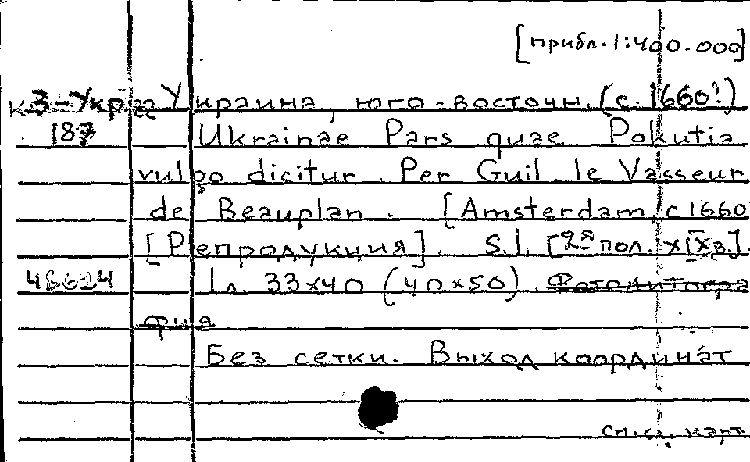 [прибл. 1:400.000]
К3-Укр Украина, юго-восточн. (с. 1660!)
187 Ukrainae Pars quae Pokutia
vulgo dicitur. Per Guil. le Vasseur
de Beauplan. [Amsterdam, c 1660
[Репродукция]. S.l. [2я пол. XIX в.].
1 л. 33x40 (40x50). Фотолитогра
фия
Без сетки. Выход координат